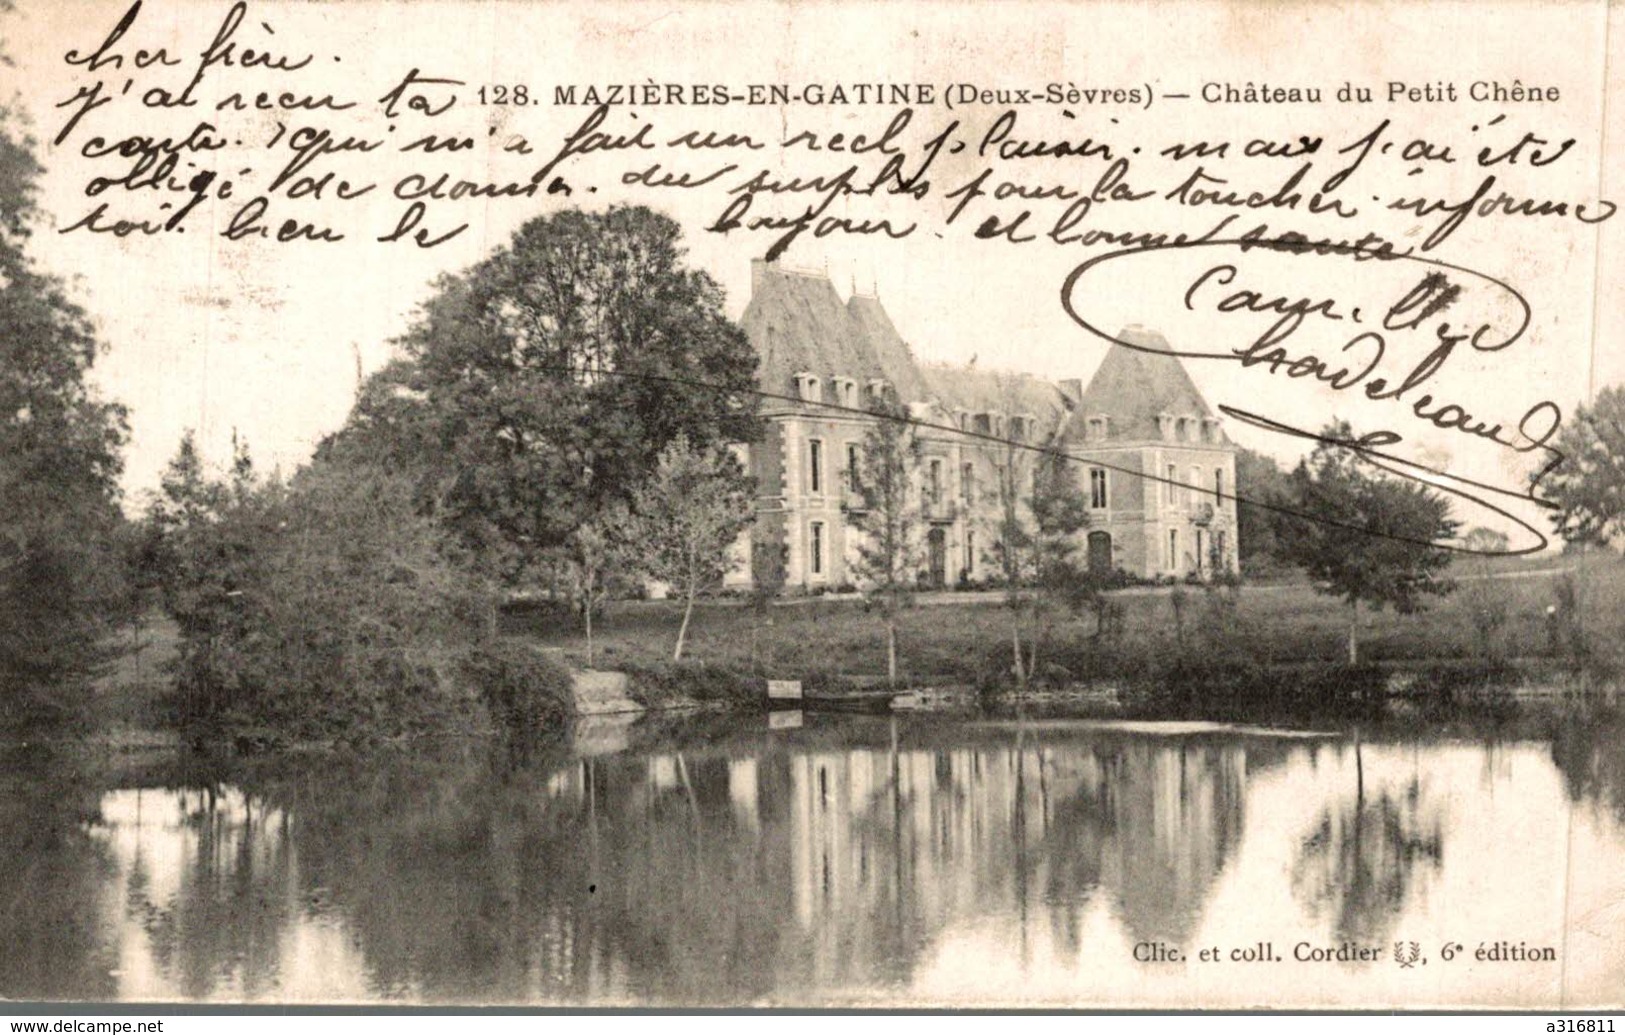 cher frère.
j'ai recu ta
128. MAZIÈRES-EN-GATINE (Deux-Sèvres) — Château du Petit Chêne
carte. qui m'a fait un reel plaisir. mais j'ai été
obligé de donner. du surplus pour la toucher. informe
toi. bien le bonjour. et bonne sante
Camille
Clic. et coll. Cordier, 6e édition
www.delcampe.net
a316811